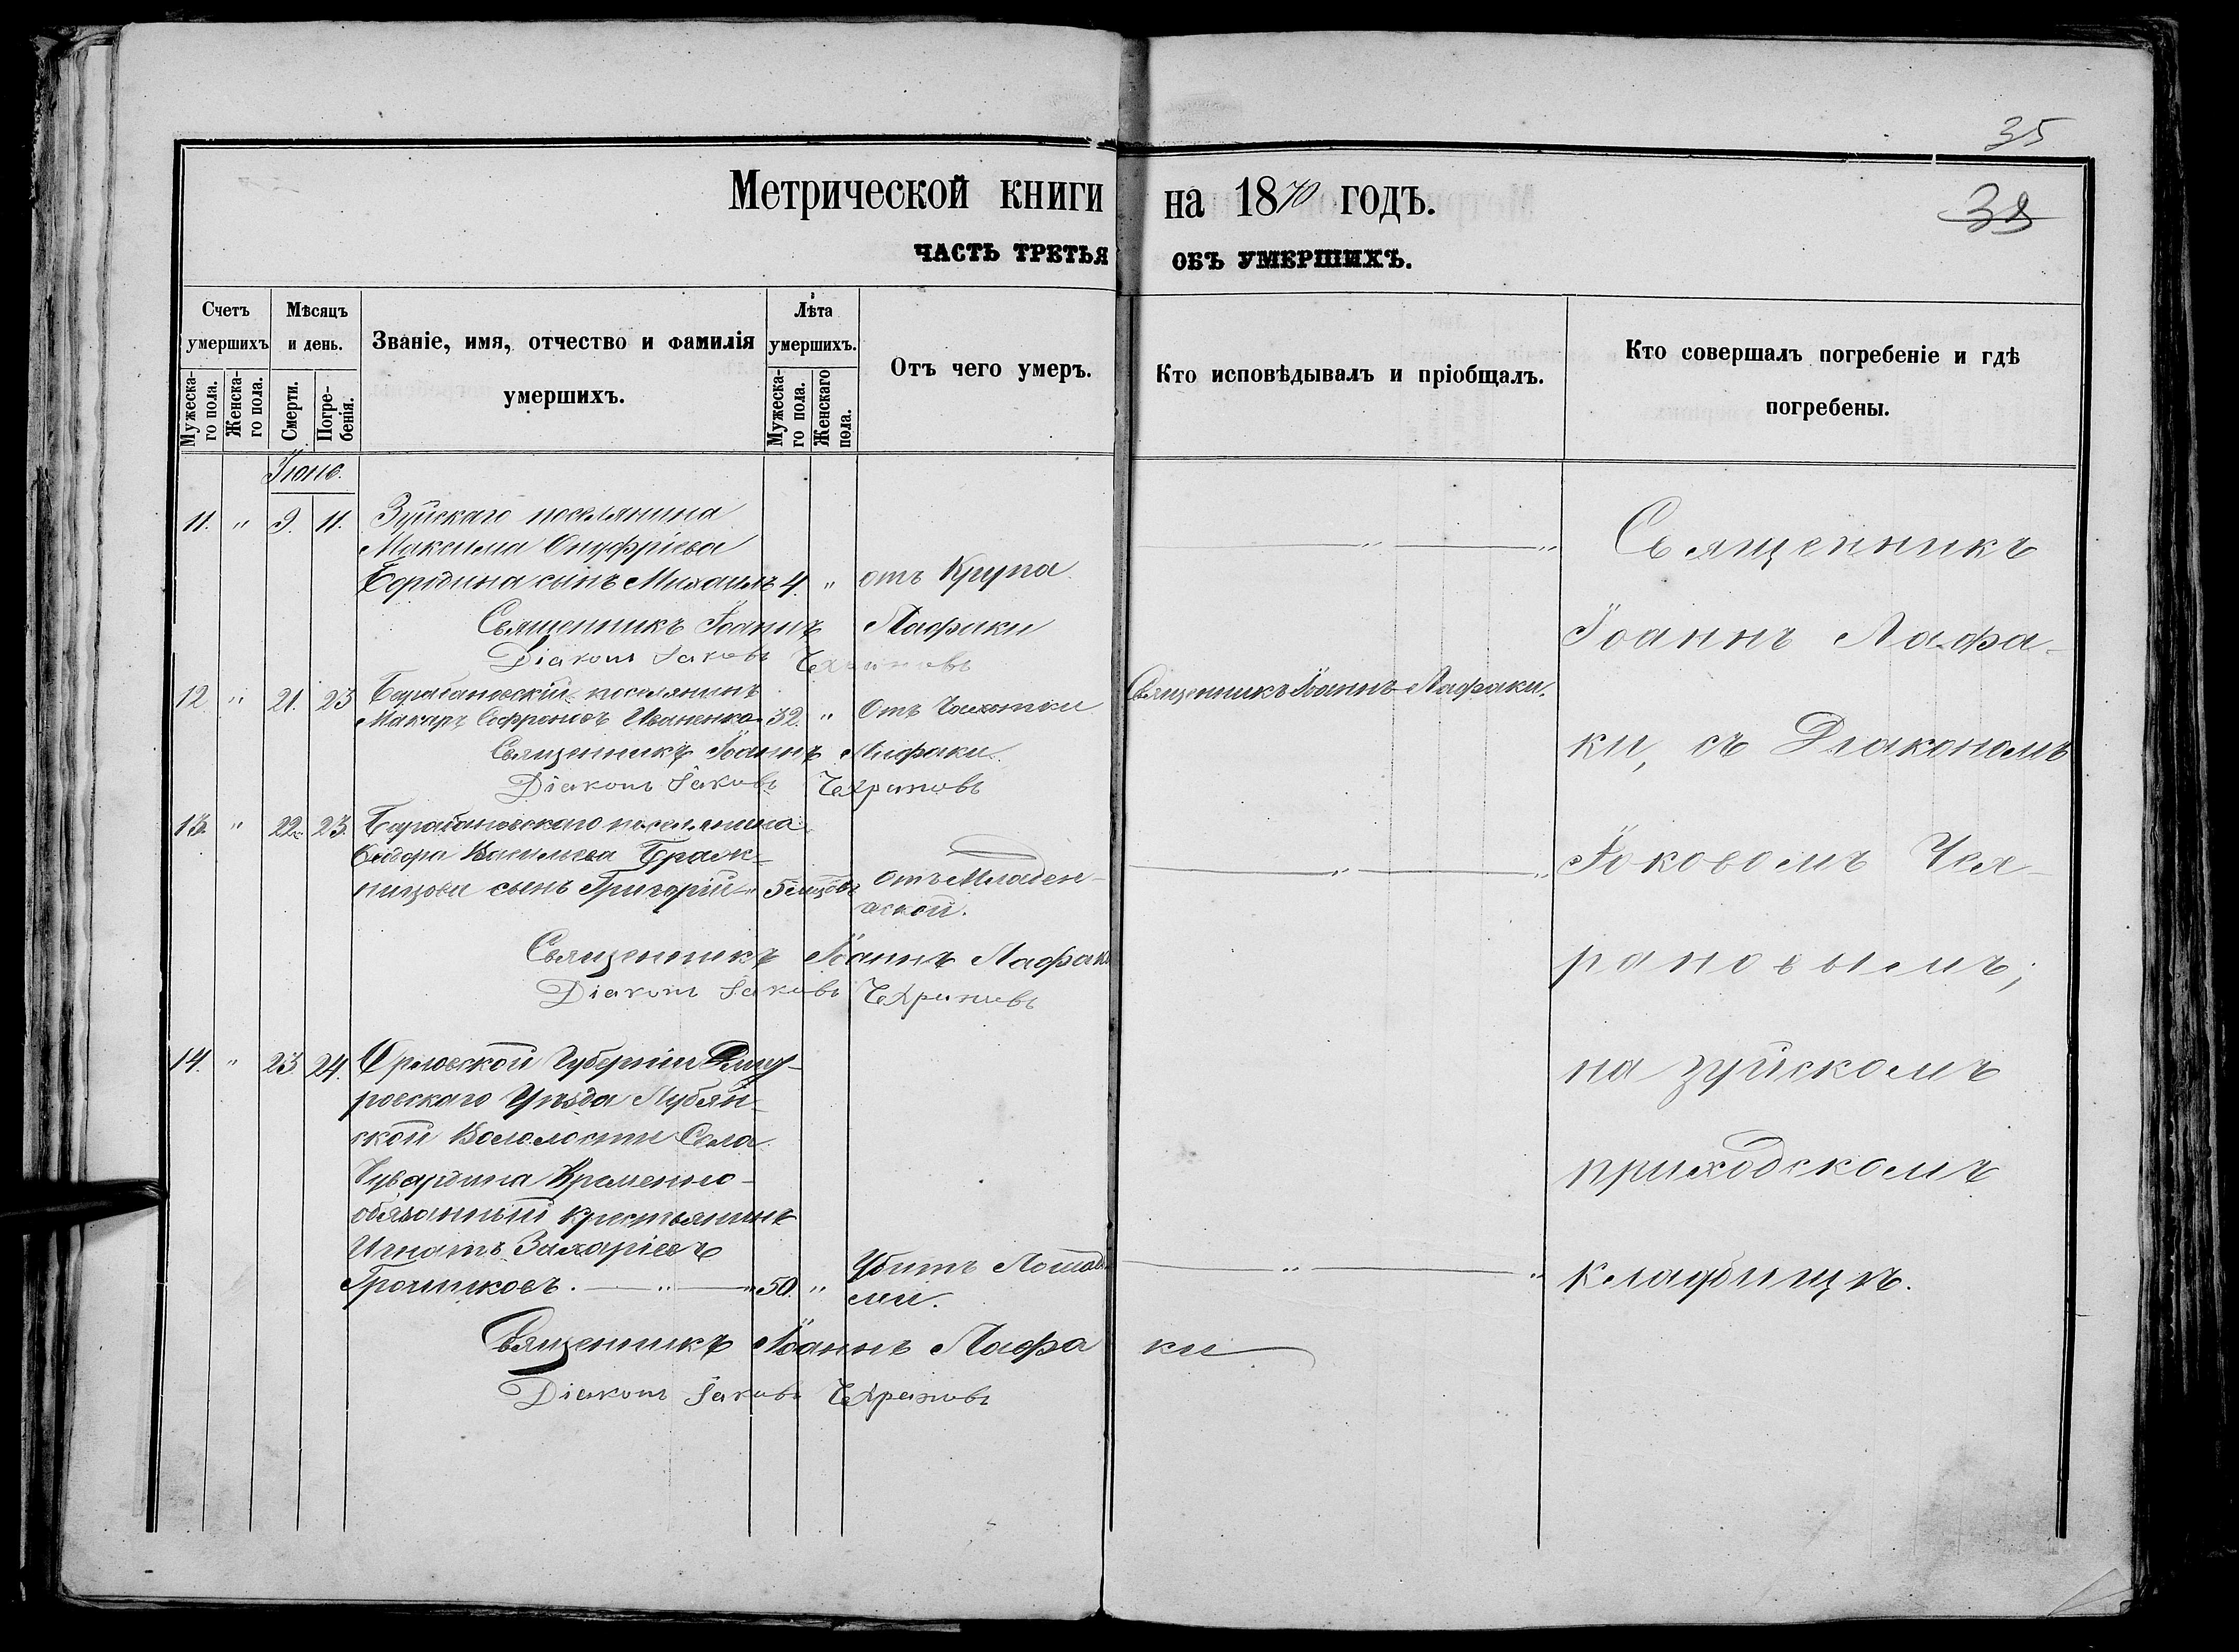 35
Метрической книги на 1870 годъ.
38
ЧАСТЬ ТРЕТЬЯ ОБЪ УМЕРШИХЪ.
Счетъ умершихъ
Мѣсяцъ и день.
Званіе, имя, отчество и фамилія умершихъ.
Лѣта умершихъ.
Отъ чего умеръ.
Кто исповѣдывалъ и пріобщалъ.
Кто совершалъ погребеніе и гдѣ погребены.
Мужеска-го пола.
Женска-го пола.
Смерти.
Погре-бенія.
Мужеска-го пола.
Женскаго пола.
Іюнь.
11. " 9. 11. Зуйскаго поселянина
Максима Онуфріева
Бородина сынъ Михаилъ 4 " отъ Крупа
Священникъ Іоаннъ Лафаки
Діаконъ Іаковъ Чехрановъ
12 " 21. 23 Барабановскій поселянинъ
Макаръ Софроновъ Иваненко 32. " Отъ Чахотки Священникъ Іоаннъ Лафаки.
Священникъ Іоаннъ Лафаки
Діаконъ Іаковъ Чехрановъ
13. " 22. 23. Барабановскаго поселянина
Ѳедора Васильева Браж-
сынъ Григорій 5 мцовъ отъ Младен-
ческой.
Священникъ Іоаннъ Лафаки
Діаконъ Іаковъ Чехрановъ
14. " 23. 24. Орловской Губерніи
ровскаго Уѣзда Лубян-
ской Села
Временно-
обязанный крестьянинъ
Игнатъ Захаріевъ
Громиковъ. 50. " Убитъ Лошадь-
ми.
Священникъ Іоаннъ Лафаки
Діаконъ Іаковъ Чехрановъ
Священникъ
Іоаннъ Лафа-
ки, съ Діакономъ
Іаковомъ Чех-
рановымъ;
на зуйскомъ
приходскомъ
кладбищѣ.